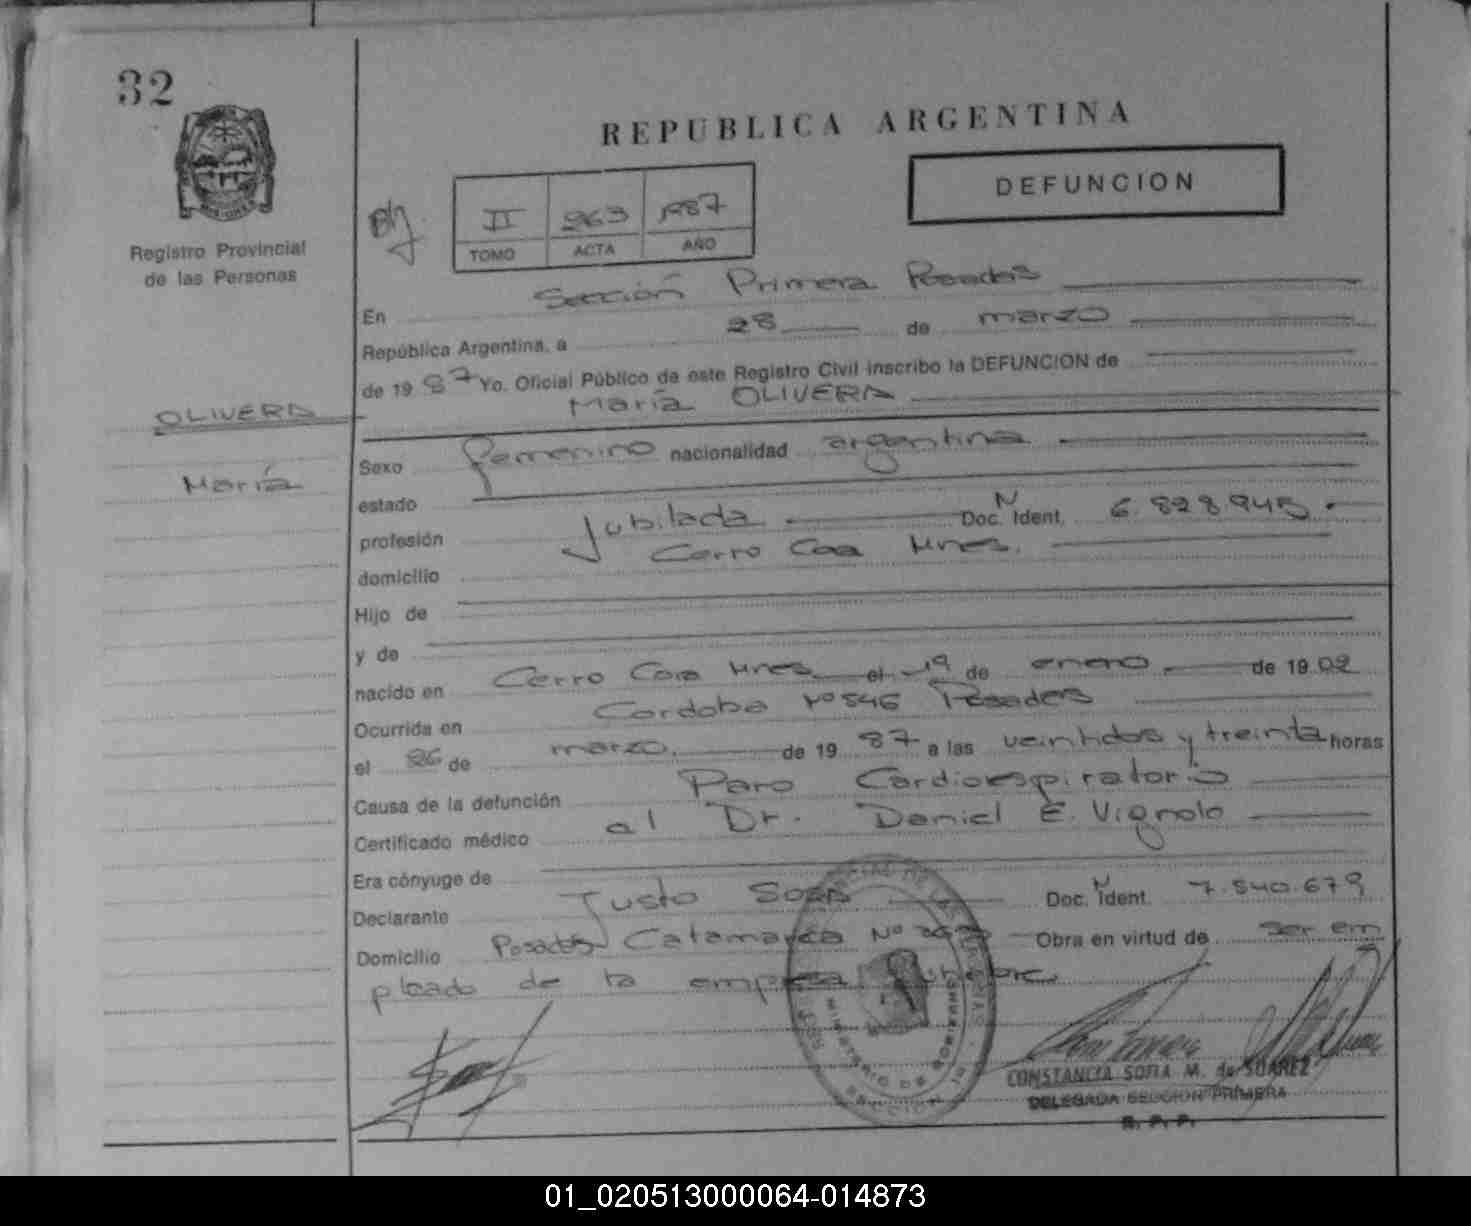 32
REPUBLICA ARGENTINA
DEFUNCION
Registro Provincial
de las Personas
II 263 1987
TOMO ACTA AÑO
En Sección Primera Posadas
República Argentina, a 28 de marzo
de 1987 Yo. Oficial Público de este Registro Civil inscribo la DEFUNCION de
María OLIVERA
OLIVERA
María
Sexo femenino nacionalidad argentina
estado
profesión Jubilada Doc. N Ident. 6.828.945
domicilio Cerro Cora Mnes.
Hijo de
y de
nacido en Cerro Cora Mnes el 19 de enero de 1902
Ocurrida en Cordoba Nº 546 Posadas
el 26 de marzo. de 1987 a las veintidos y treinta horas
Causa de la defunción Paro Cardiorespiratorio
Certificado médico al Dr. Daniel E. Vignolo
Era cónyuge de
Declarante Justo Sosa Doc. N Ident. 7.540.679
Domicilio Posadas Catamarca Nº Obra en virtud de ser em
pleado de la empresa
MINISTERIO DE
SECCION
CONSTANCIA SOFIA M. de SUAREZ
DELEGADA SECCION PRIMERA
R. P. P.
01_020513000064-014873